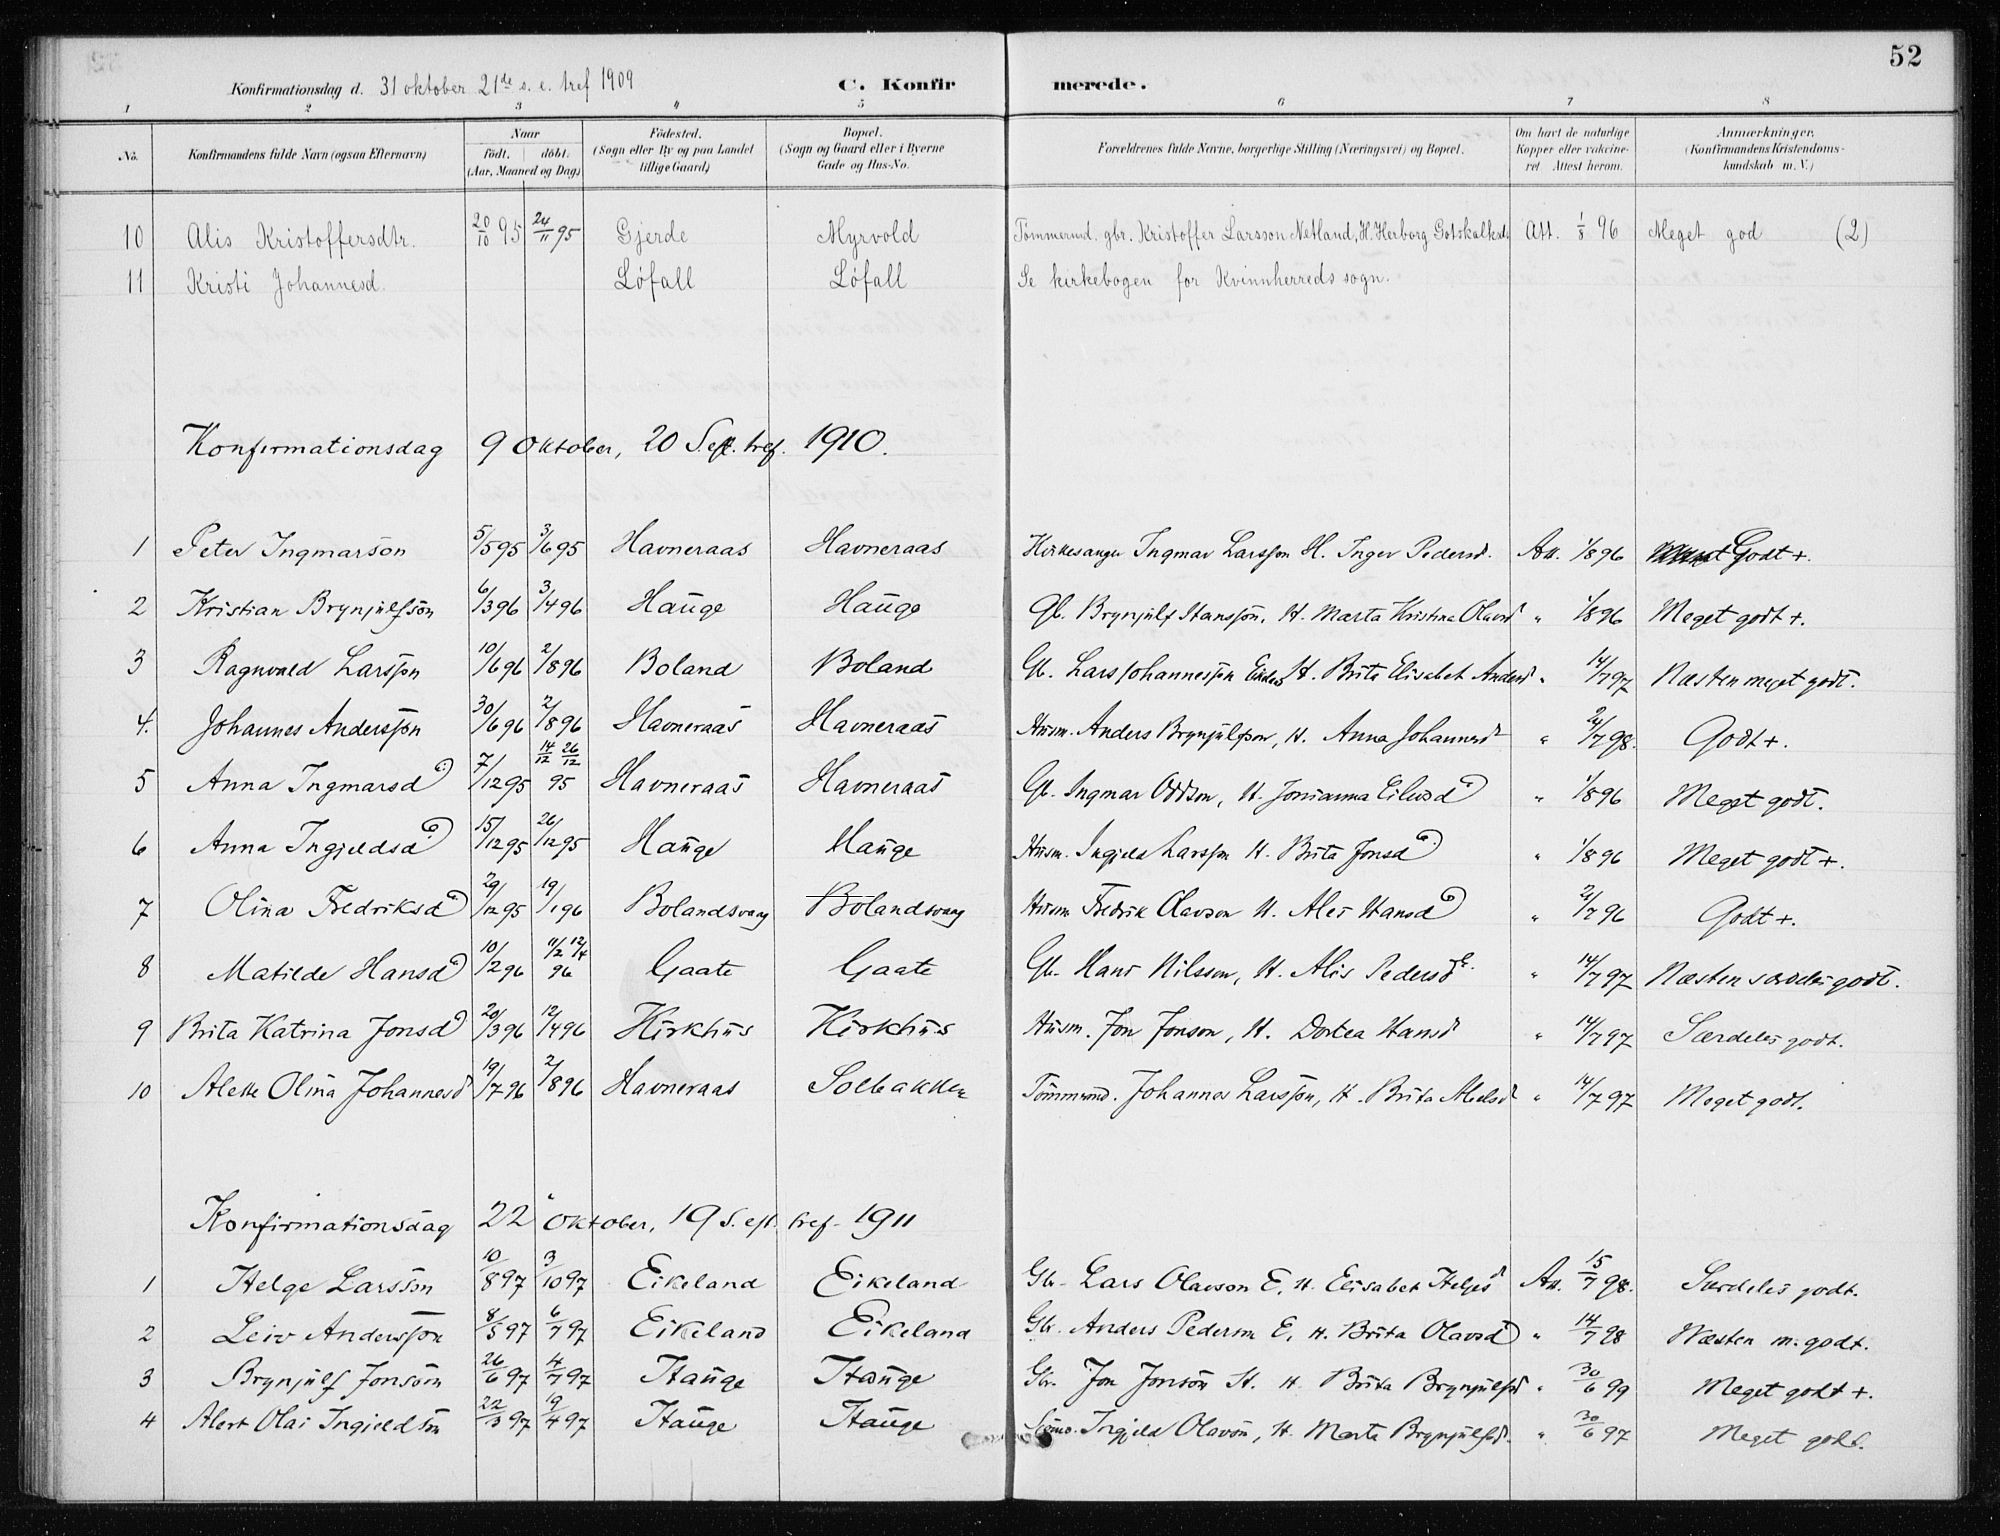 52
Konfirmationsdag d. 31 oktober 21de s. e. tref 1909 C. Konfirmerede.
1 2 3 4 5 6 7 8
No. Konfirmandens fulde Navn (ogsaa Efternavn) Naar födt. döbt. (Aar, Maaned og Dag) Födested. (Sogn eller By og paa Landet tillige Gaard) Bopæl. (Sogn og Gaard eller i Byerne Gade og Hus-No. Forældrenes fulde Navne, borgerlige Stilling (Næringsvei) og Bopæl. Om havt de naturlige Kopper eller vakcineret. Attest herom. Anmærkninger. (Konfirmandens Kristendomskundskab m. V.)
10 Alis Kristoffersdtr. 20/10 95 24/11 95 Gjerde Myrvold Tömmermd. gbr. Kristoffer Larsson Netland, H. Herborg Gotskalksd. Att. 1/8 96 Meget god (2)
11 Kristi Johannesd. Löfall Löfall Se kirkebogen for Kvinnherreds sogn.
Konfirmationsdag 9 Oktober, 20 S. eft. tref. 1910.
1 Peter Ingmarson 5/5 95 3/6 95 Havneraas Havneraas Kirkesanger Ingmar Larsson H. Inger Pedersd. Att. 1/8 96 Godt +.
2 Kristian Brynjulfson 6/3 96 3/4 96 Hauge Hauge Gb. Brynjulf Hansson, H. Marta Kristina Olavsd " 1/8 96 Meget godt +.
3 Ragnvald Larsson 10/6 96 2/8 96 Boland Boland Gb. Lars Johannesson H. Brita Elisabet Andersd " 14/7 97 Næsten meget godt.
4. Johannes Andersson 30/6 96 2/8 96 Havneraas Havneraas Husm. Anders Brynjulfson, H. Anna Johannesd " 2/7 98. Godt +.
5 Anna Ingmarsd 7/12 95 14/12 26/12 95 Havneraas Havneraas Gb. Ingmar Oddson, H. Jonsanna " 1/8 96 Meget godt.
6 Anna Ingjeldsd 15/12 95 26/12 95 Hauge Hauge Husm. Ingjeld Larsson H. Brita Jonsd " 1/8 96 Meget godt +.
7 Olina Fredriksd 29/12 95 19/1 96 Bolandsvaag Bolandsvaag Husm Fredrik Olavson H. Alis Hansd " 2/7 96 Godt +.
8 Matilde Hansd 10/2 96 11/2 12/4 96 Gaate Gaate Gb. Hans Nilsson, H. Alis Pedersd " 14/7 97 Næsten særdeles godt.
9 Brita Katrina Jonsd 20/3 96 12/4 96 Kirkhus Kirkhus Husm. Jon Jonson, H. Dortea Hansd " 14/7 97 Særdeles godt.
10 Alette Olina Johannesd 19/7 96 2/8 96 Havneraas Solbakken Tömmermd. Johannes Larsson, H. Brita " 14/7 97 Meget godt.
Konfirmationsdag 22 oktober, 19 S. eft. tref. 1911
1 Helge Larsson 10/8 97 3/10 97 Eikeland Eikeland Gbr. Lars Olavson E, H. Elisabet Helgesd Att. 15/7 98. Særdeles godt.
2 Leiv Andersson 8/5 97 6/7 97 Eikeland Eikeland Gbr. Anders Pederson E, H. Brita Olavsd " 14/7 98 Næsten m. godt.
3 Brynjulf Jonson 26/6 97 4/7 97 Hauge Hauge Gbr. Jon Jonson H. H. Brita Brynjulfsd " 30/6 99 Meget godt +.
4 Alert Olai Ingjeldson 22/3 97 19/4 97 Hauge Hauge Ingjeld Olavson, H. Marta Brynjulfsd. " 30/6 97 Meget godt.